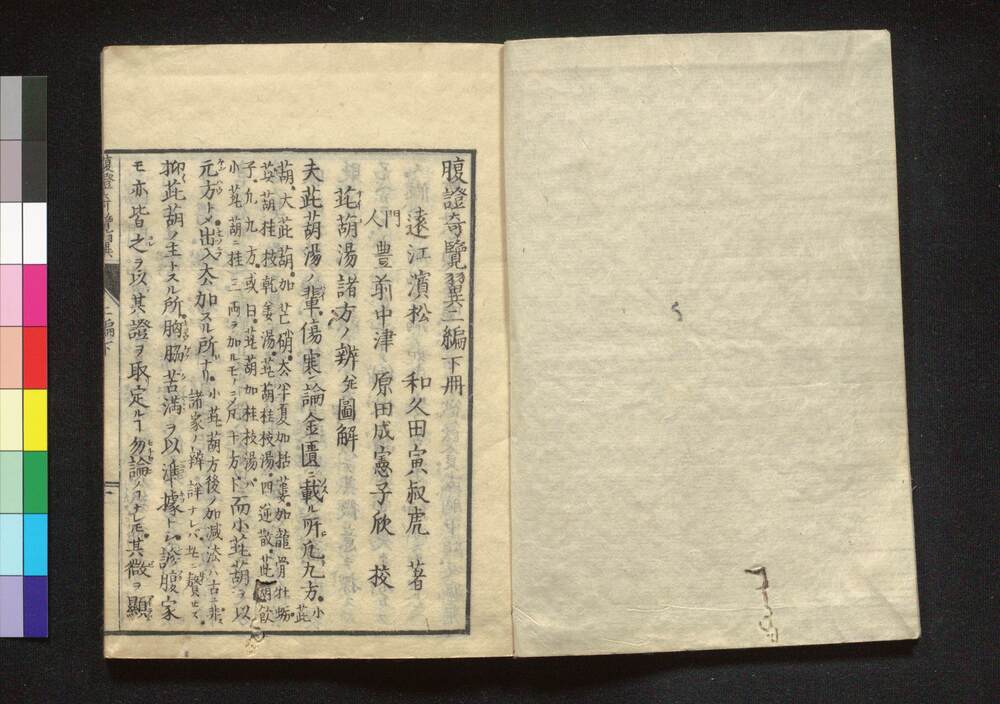 腹證奇覽翼二編下冊
遠江濱松 和久田寅叔虎 著
門人 豊前中津 原田成憲子欣 校
茈葫湯諸方ノ辨并圖解
夫茈葫湯ノ輩傷寒論金匱ニ載ル所凡九方小茈
葫大茈葫加芒硝去半夏加括蔞加龍骨牡蛎
茈葫桂枝乾姜湯茈葫桂枝湯四逆散茈葫飲
子凡九方或曰茈葫加桂枝湯ハ
小茈葫ニ桂三両ヲ加ルモノニメ凡十方ト而小茈葫ヲ以
元方トメ出入去加スル所ナリ小茈葫方後ノ加減法ハ古ニ非
諸家ノ辨詳ナレバ茈ニ贅セズ
抑茈葫ノ主トスル所胸脇苦満ヲ以準據トシ診腹家
モ亦皆之ヲ以其證ヲ取定ルヿ勿論ノヿナレ𪜈其微ヲ顯
二編下